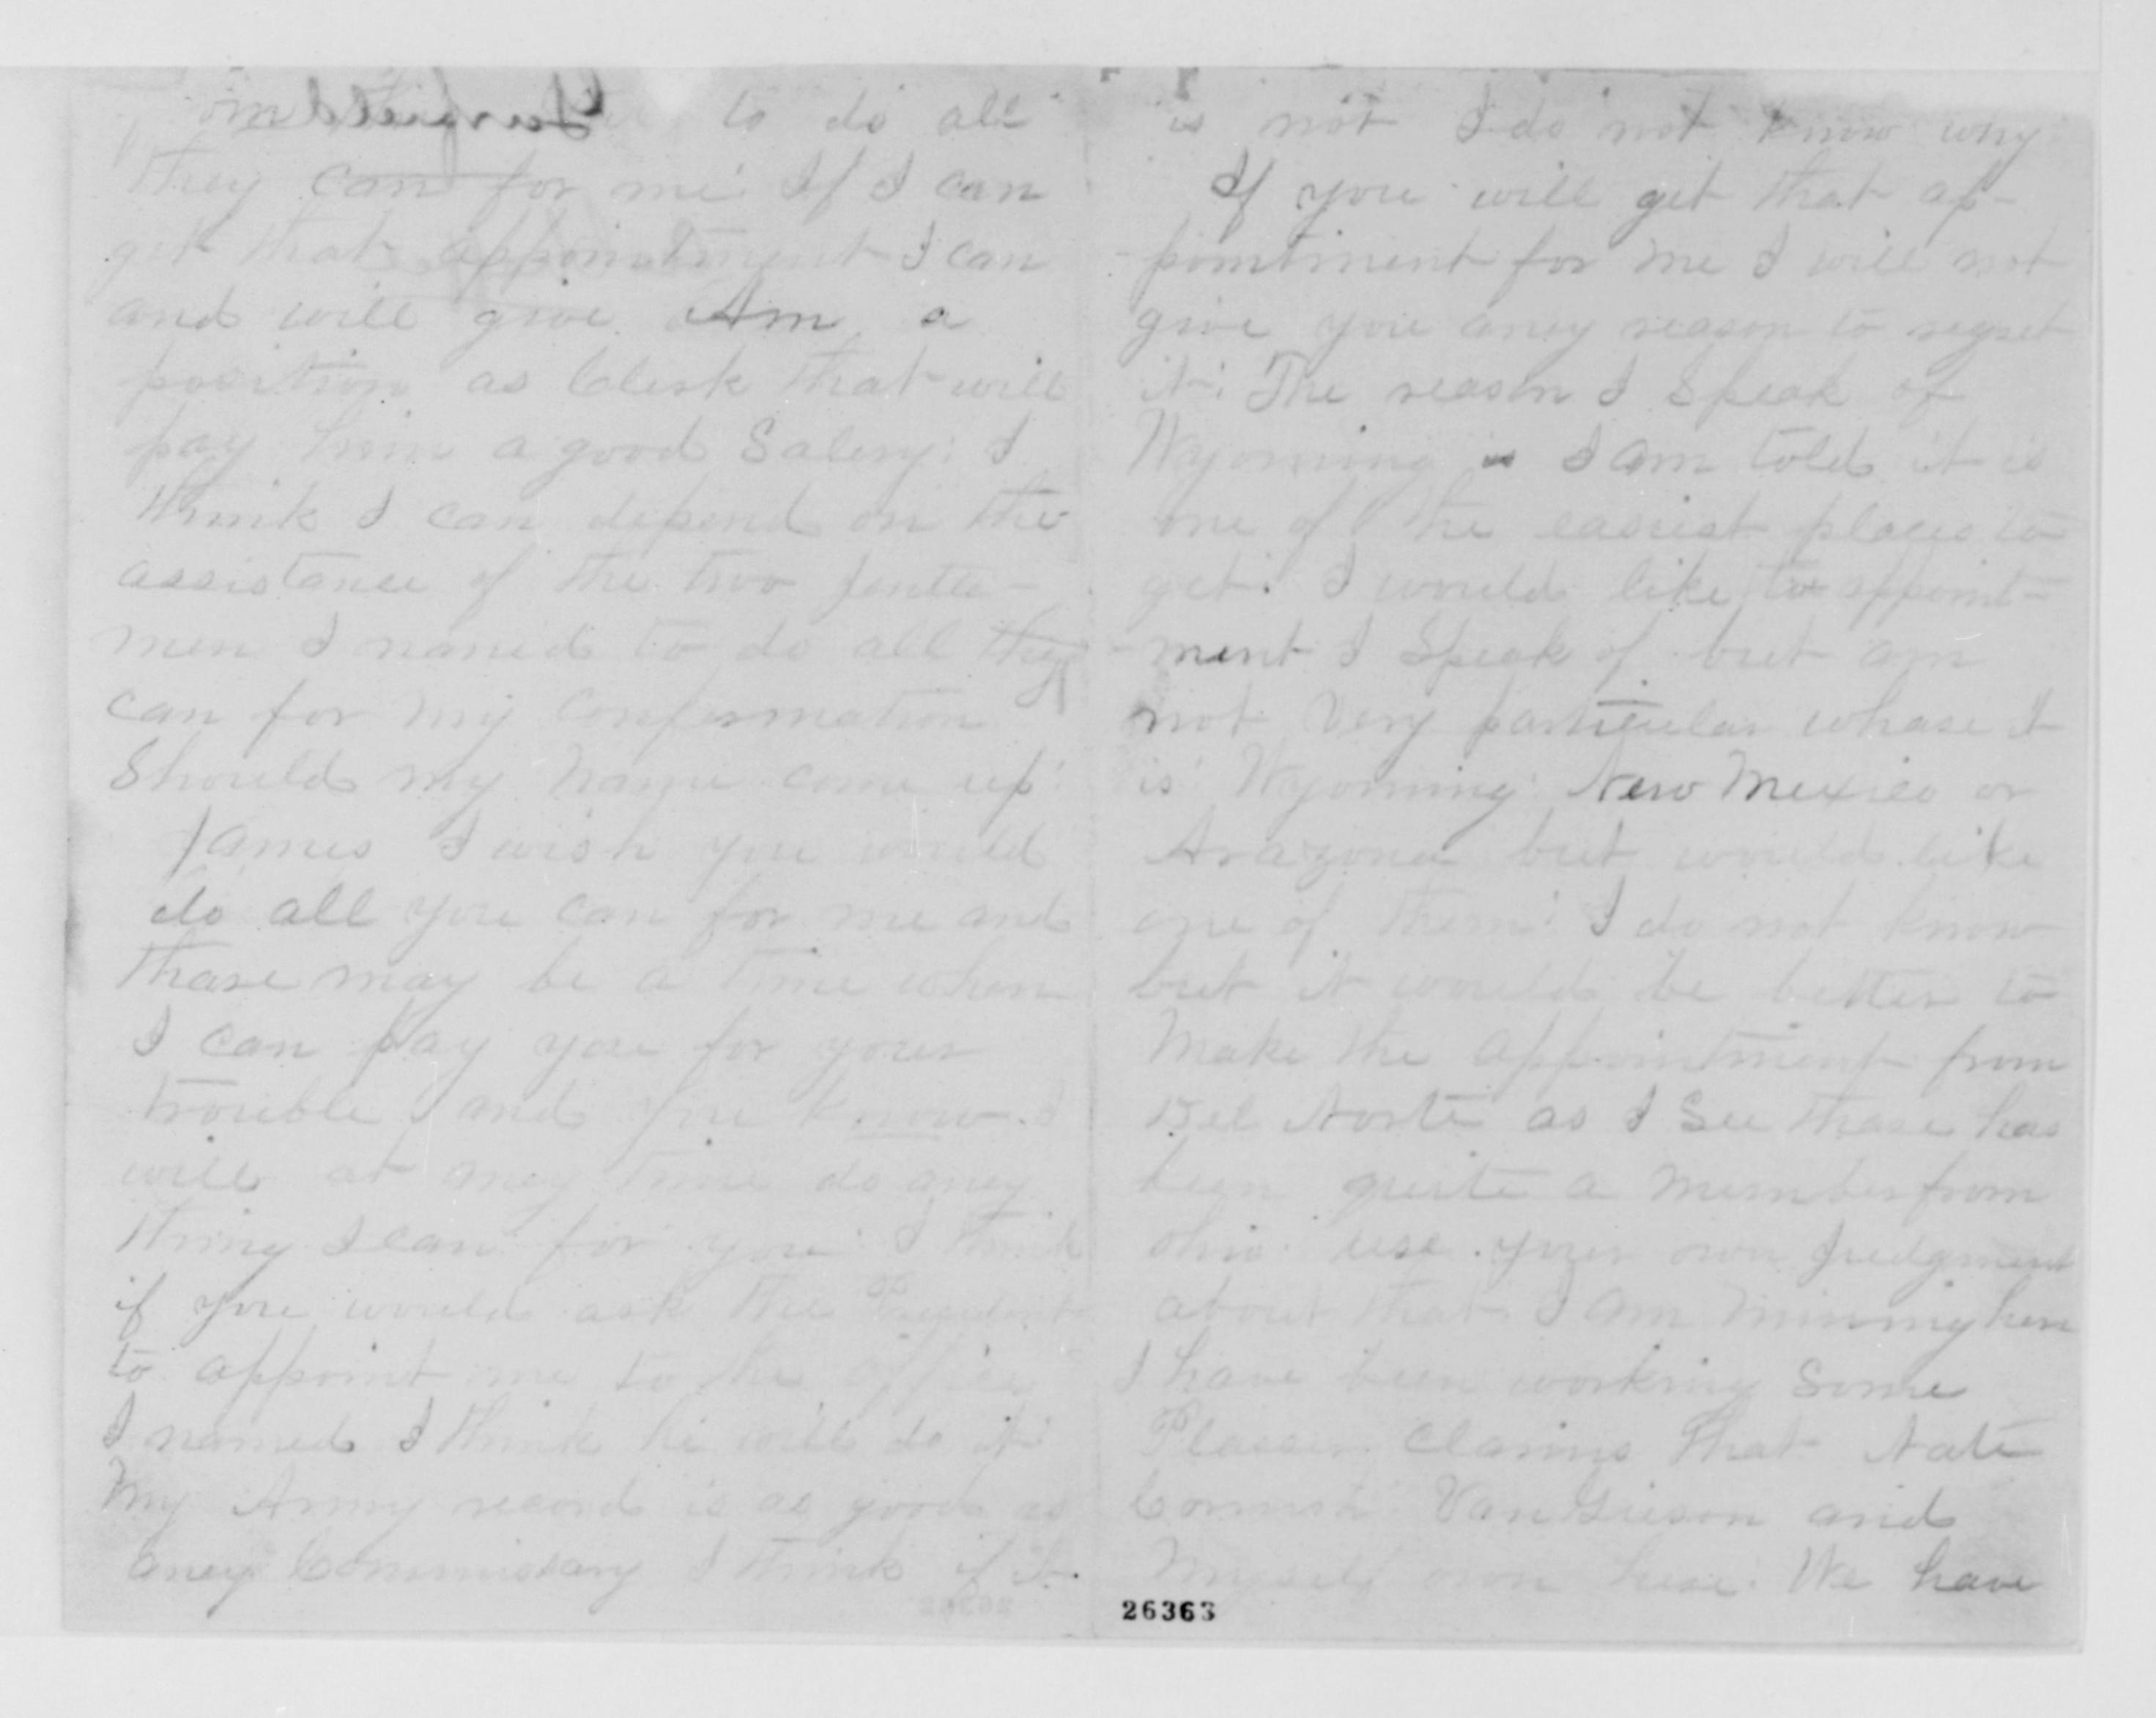 to do all
they can for me: If I can
get that appointment I can
and will give Am a
position as Clerk that will
pay him a good Salery: I
think I can depend on the
assistance of the two Gentle-
men I named to do all they
can for my Confermation
Should my name come up:
James I wish you would
do all you can for me and
thare may be a time when
I can pay you for your
trouble and you know I
will at aney time do aney
thing I can for you: I think
if you would ask the President
to appoint me to the office
I named I think he will do it:
My Army record is as good as
aney Commissary I think if it
is not I do not know why
If you will get that ap-
-pointment for me I will not
give you aney reason to regret
it: The reason I Speak of
Wyoming is I am told it is
one of the easiest places to
get: I would like the appoint-
-ment I Speak of but am
not Very particular whare it
is: Wyoming: New Mexico or
Arazona but would like
one of them: I do not know
but it would be better to
Make the appointment from
Del Norte as I See thare has
been quite a number from
ohio: use your own Judgment
about that I am mining here
I have been working Some
Placer Claims that Nate
Cornish VanGieson and
Myself own here: We have
26363
Garfield